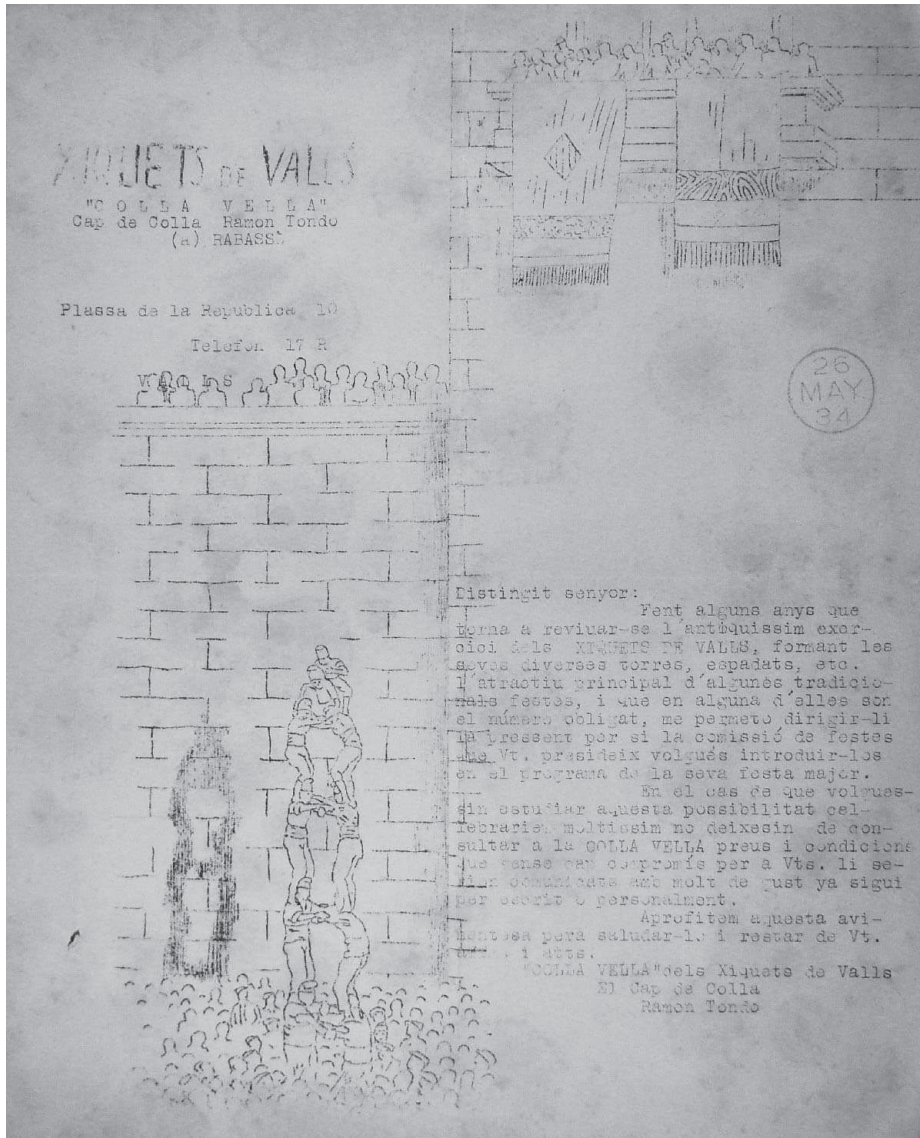 XIQUETS DE VALLS
"COLLA VELLA"
Cap de Colla Ramon Tondo
(a) RABASSÓ
Plassa de la Republica 10
Telefon 17 R
VALLS
26
MAY.
34
Distingit senyor:
Fent alguns anys que
torna a reviuar-se l'antiquissim exer-
cici dels XIQUETS DE VALLS, formant les
seves diverses torres, espadats, etc.
l'atractiu principal d'algunes tradicio-
nals festes, i que en alguna d'elles son
el número obligat, me permeto dirigir-li
la pressent per si la comissió de festes
que Vt. presideix volgués introduir-los
en el programa de la seva festa major.
En el cas de que volgues-
sin estudiar aquesta possibilitat cel-
lebrariem moltissim no deixesin de con-
sultar a la COLLA VELLA preus i condicions
que sense cap compromís per a Vts. li se-
rien comunicats amb molt de gust ya sigui
per escrit o personalment.
Aprofitem aquesta avi-
nentesa pera saludar-lo i restar de Vt.
i atts.
"COLLA VELLA"dels Xiquets de Valls
El Cap de Colla
Ramon Tondo